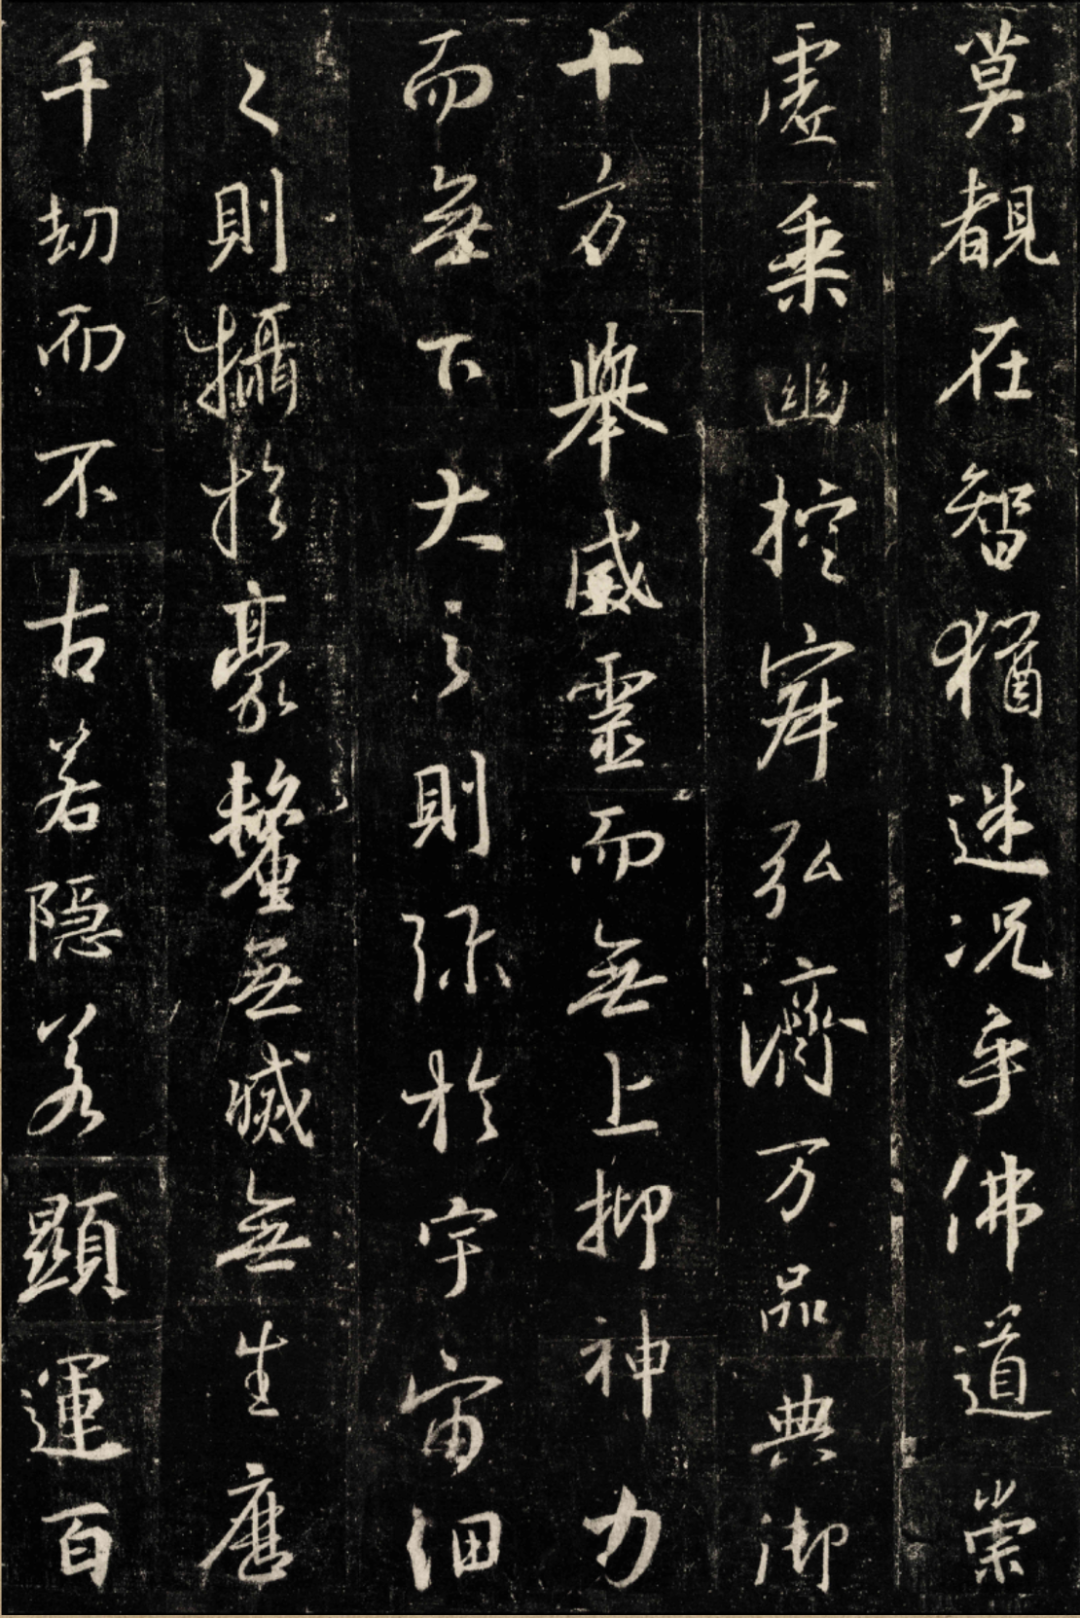 莫覩在智猶迷况乎佛道崇
虛乘幽控寂弘濟万品典御
十方舉威靈而無上抑神力
而無下大之則弥於宇宙細
之則攝於豪釐無滅無生歷
千劫而不古若隱若顯運百